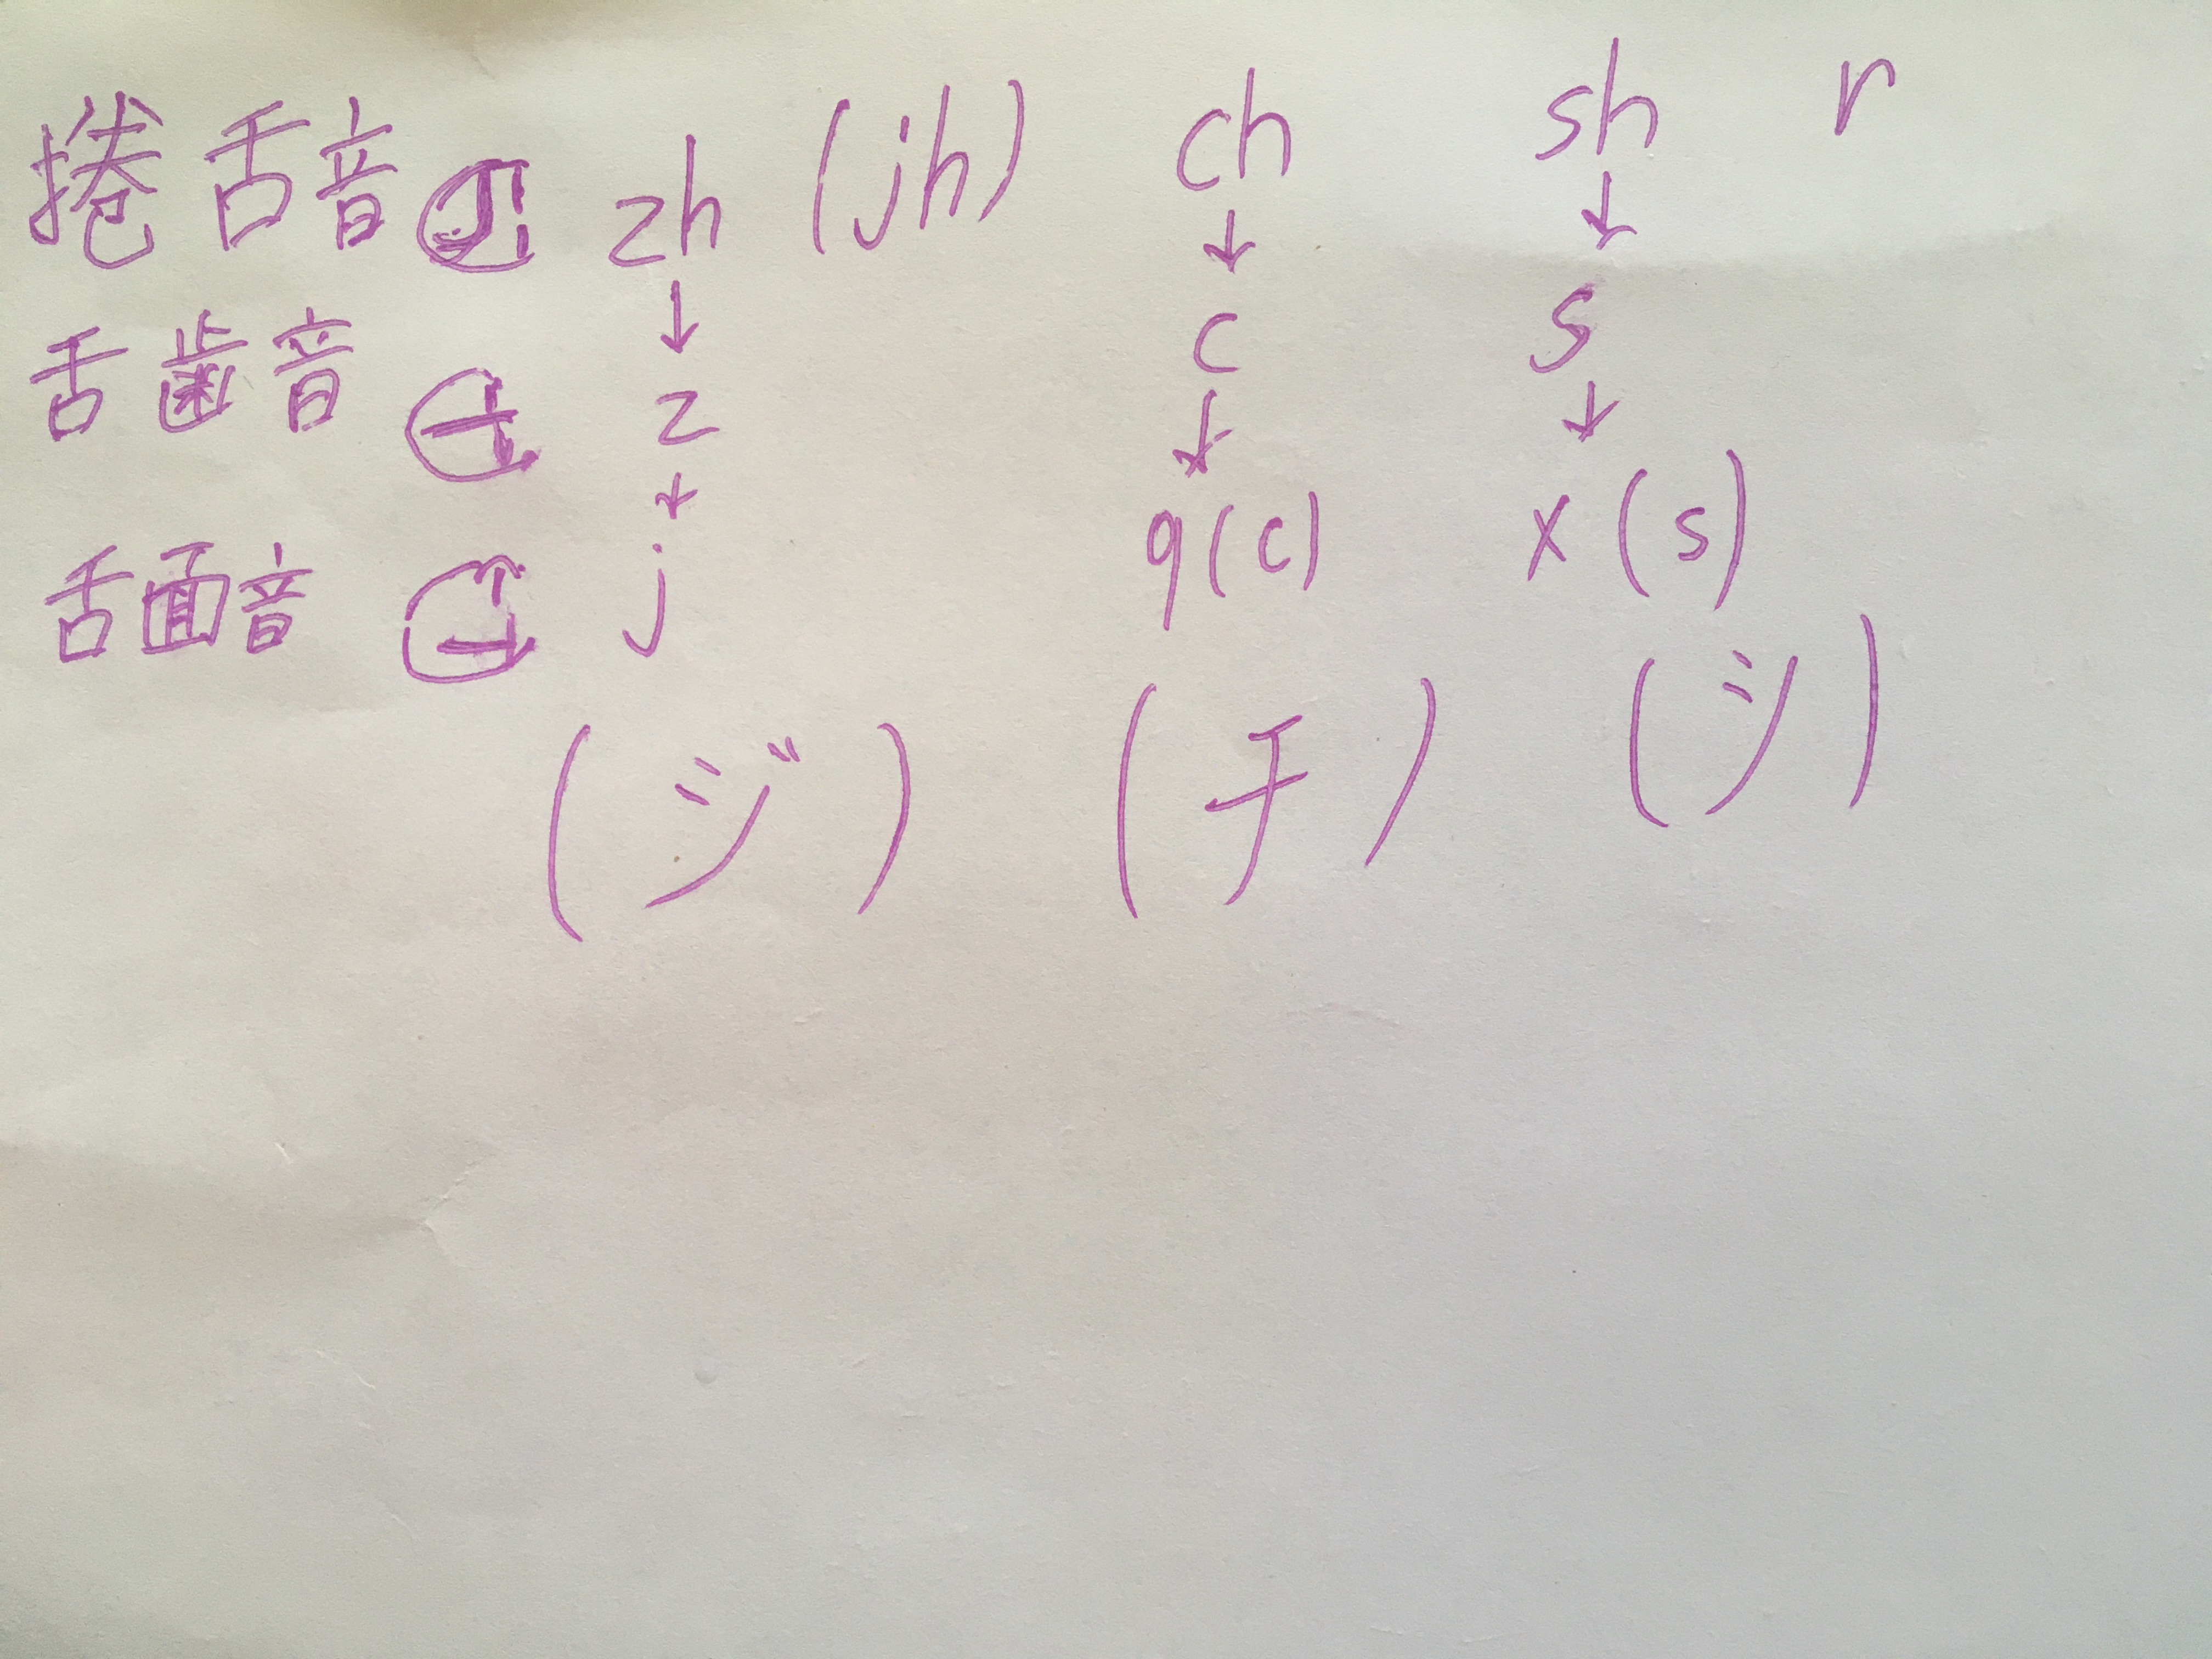 捲舌音 zh (jh) ch sh r
↓ ↓ ↓
舌歯音 z c s
↓ ↓ ↓
舌面音 j q(c) x(s)
(ジ) (チ) (シ)